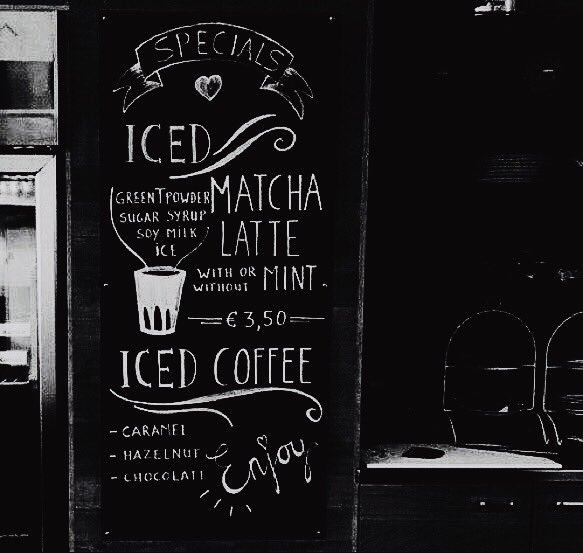 SPECIALS
ICED
MATCHA
LATTE
GREENTPOWDER
SUGAR SYRUP
SOY MILK
ICE
WITH OR
WITHOUT
MINT
€3,50
ICED COFFEE
- CARAMEL
- HAZELNUT
- CHOCOLATE
Enjoy